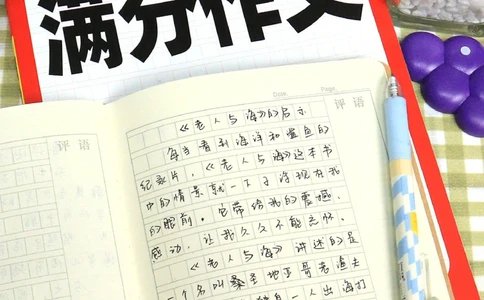 满分作文
Date.
Page.
评语
评语
《老人与海》的启示
每当看到海洋和鲨鱼的
纪录片,《老人与海》这本书
中的情景就一下子浮现在我
的眼前。它带给我的震撼、
感动,让我久久不能忘怀。
《老人与海》讲述的是
一个名叫桑圣地亚哥老渔夫
独自一人出海打